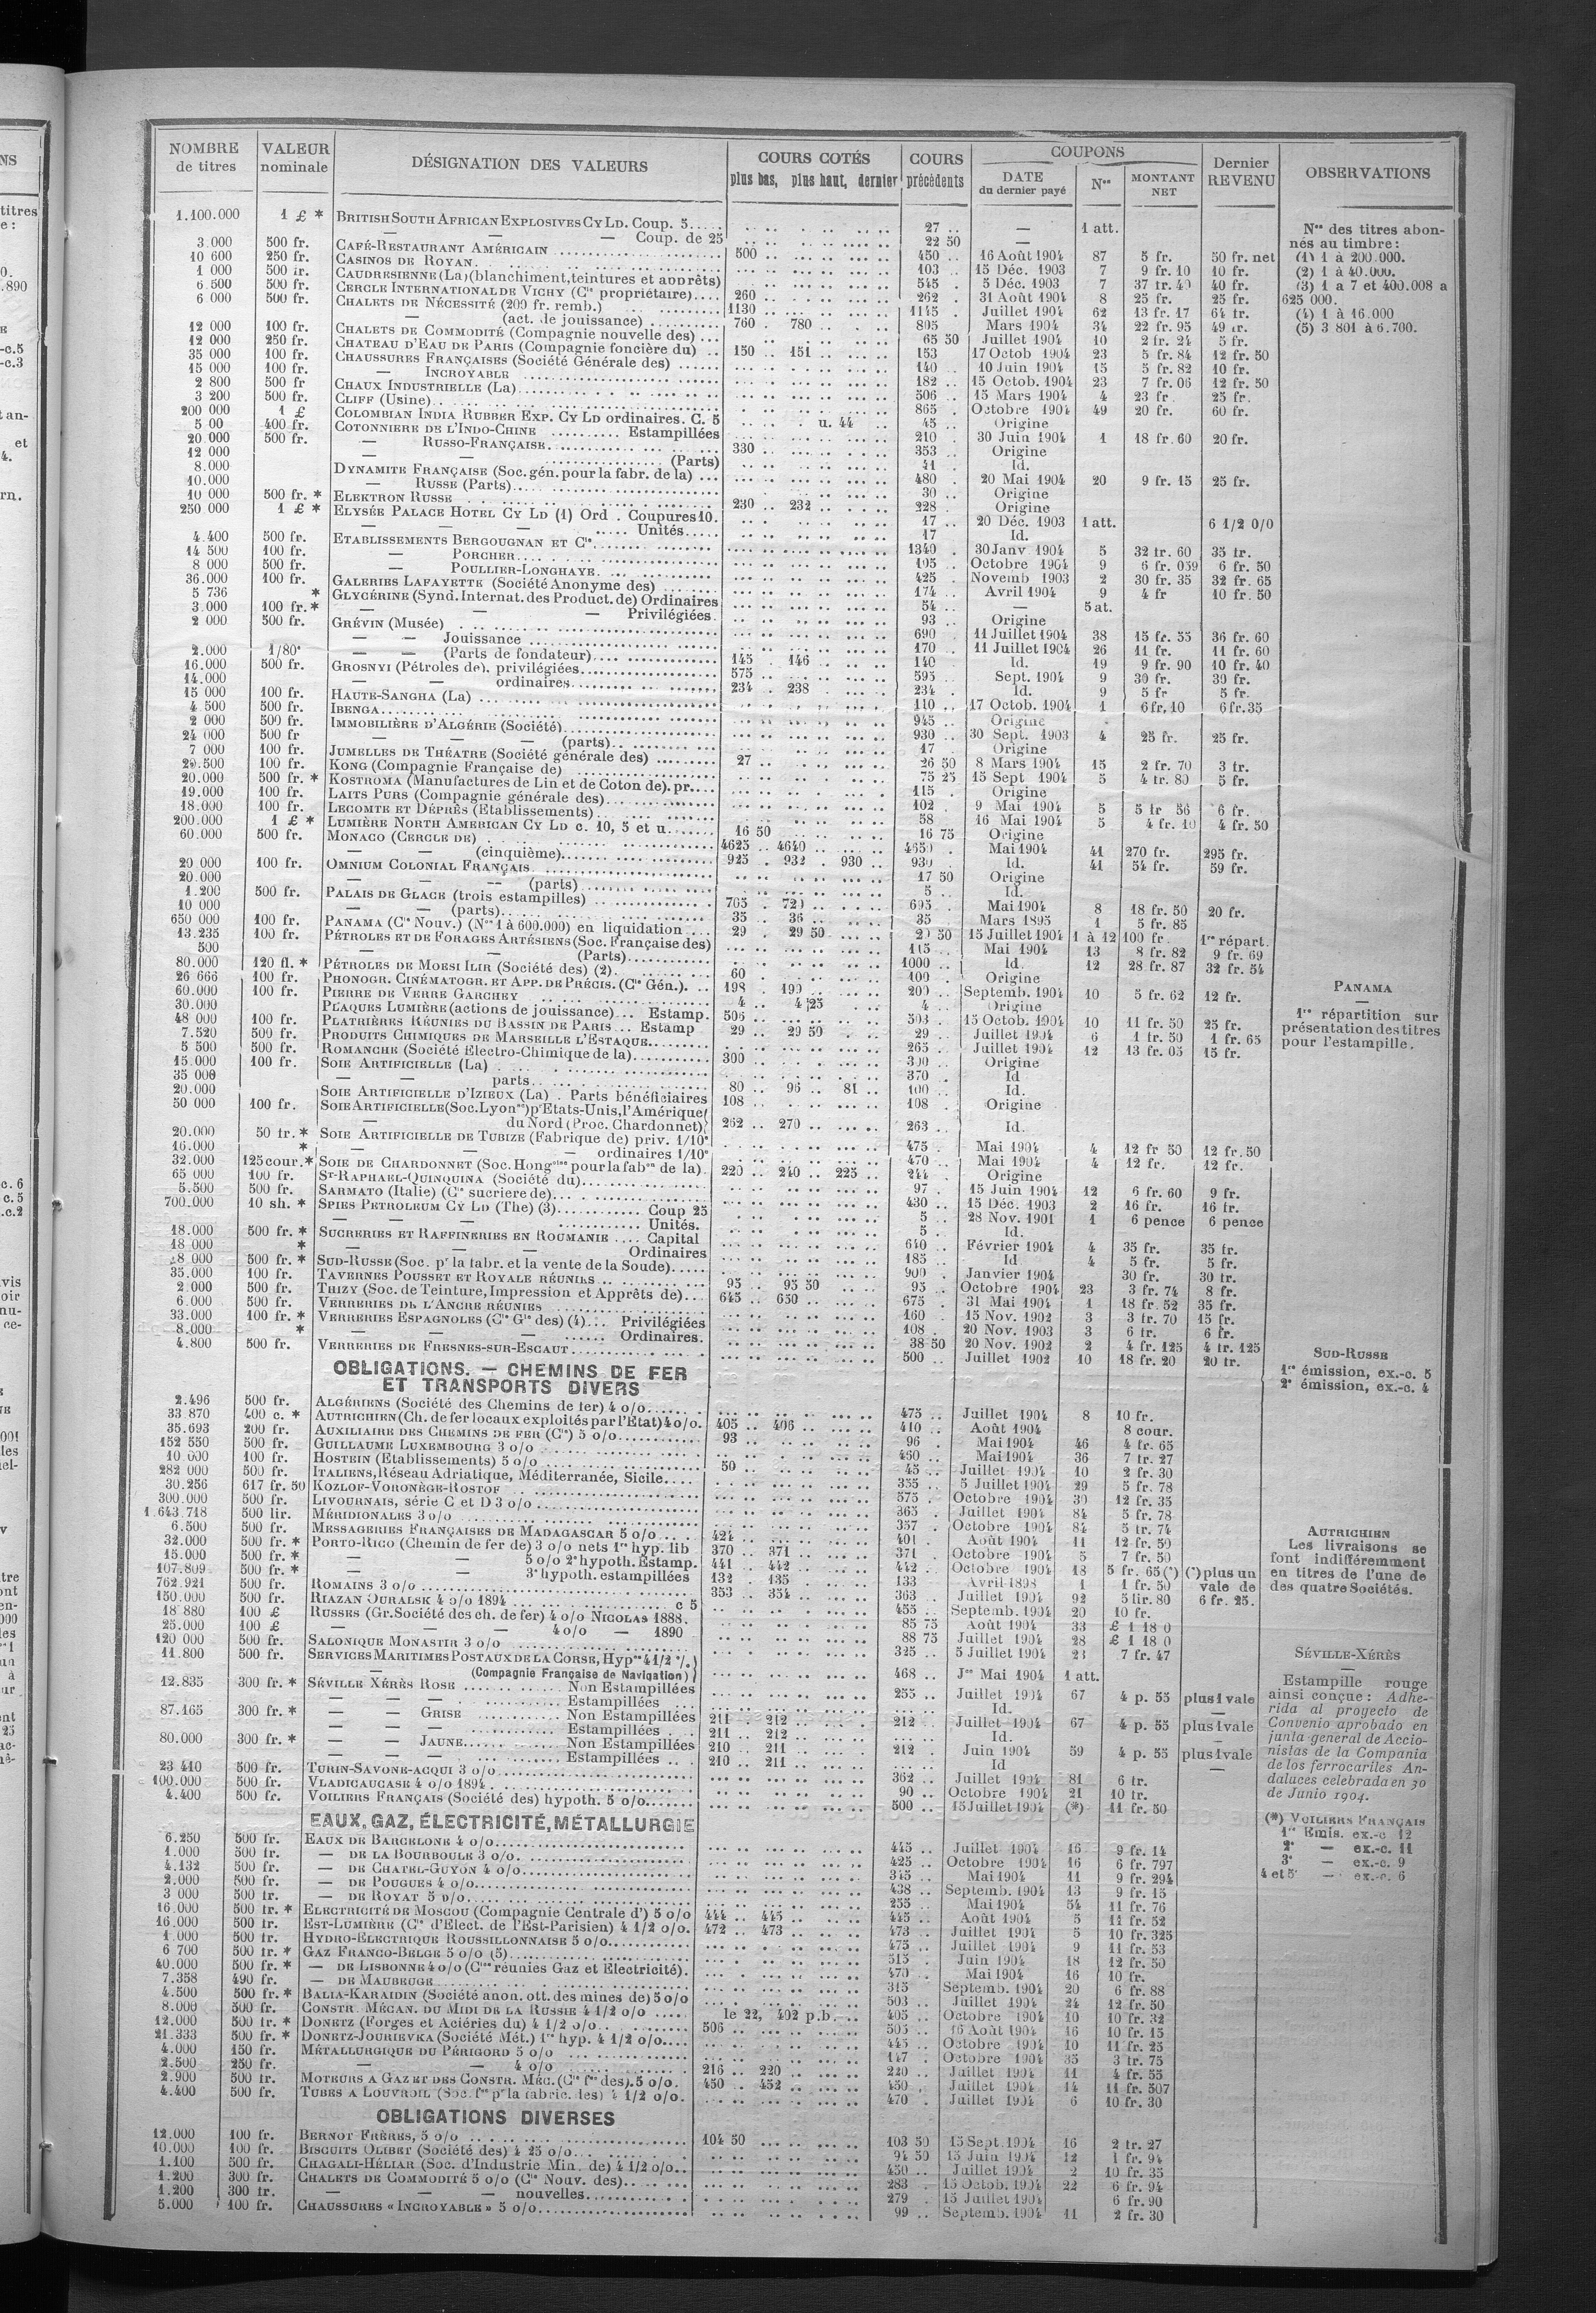 NOMBRE de titres | VALEUR nominale | DÉSIGNATION DES VALEURS | COURS COTÉS plus bas, plus haut, dernier | COURS précédents | COUPONS DATE du dernier payé | Nos | MONTANT NET | Dernier REVENU | OBSERVATIONS
1.100.000 1 £ * BRITISH SOUTH AFRICAN EXPLOSIVES CY LD. Coup. 5..... 27 .. — 1 att.
— — — Coup. de 25 22 50 —
3.000 500 fr. CAFÉ-RESTAURANT AMÉRICAIN 500 .. 450 .. 16 Août 1904 87 5 fr. 50 fr. net
10 600 250 fr. CASINOS DE ROYAN. 103 .. 15 Déc. 1903 7 9 fr. 10 10 fr.
1 000 500 fr. CAUDRESIENNE (La) (blanchiment, teintures et apprêts) 545 .. 5 Déc. 1903 7 37 fr. 40 40 fr.
6.500 500 fr. CERCLE INTERNATIONAL DE VICHY (Cie propriétaire).... 260 .. 262 .. 31 Août 1904 8 25 fr. 25 fr.
6 000 500 fr. CHALETS DE NÉCESSITÉ (200 fr. remb.) 1130 .. 1145 . Juillet 1904 62 13 fr. 17 64 fr.
— (act. de jouissance) 760 . 780 .. 805 Mars 1904 34 22 fr. 95 49 fr.
12 000 100 fr. CHALETS DE COMMODITÉ (Compagnie nouvelle des) ... 65 50 Juillet 1904 10 2 fr. 24 5 fr.
12 000 250 fr. CHATEAU D'EAU DE PARIS (Compagnie foncière du) .. 150 .. 151 .. 153 17 Octob 1904 23 5 fr. 84 12 fr. 50
35 000 100 fr. CHAUSSURES FRANÇAISES (Société Générale des) ...... 140 .. 10 Juin 1904 15 5 fr. 82 10 fr.
15 000 100 fr. — INCROYABLE 182 .. 15 Octob. 1904 23 7 fr. 06 12 fr. 50
2 800 500 fr CHAUX INDUSTRIELLE (La) 506 .. 15 Mars 1904 4 23 fr. 25 fr.
3 200 500 fr. CLIFF (Usine) 865 . Octobre 1904 49 20 fr. 60 fr.
200 000 1 £ COLOMBIAN INDIA RUBBER EXP. CY LD ordinaires. C. 5 u. 44 .. 45 .. Origine
5 00 400 fr. COTONNIERE DE L'INDO-CHINE .......... Estampillées 210 . 30 Juin 1904 1 18 fr. 60 20 fr.
20.000 500 fr. — RUSSO-FRANÇAISE 330 .. 353 .. Origine
12 000 — — (Parts) 41 . Id.
8.000 DYNAMITE FRANÇAISE (Soc. gén. pour la fabr. de la) ... 480 . 20 Mai 1904 20 9 fr. 15 25 fr.
10.000 — RUSSE (Parts) 30 .. Origine
10 000 500 fr. * ELEKTRON RUSSE 230 .. 232 .. 228 . Origine
250 000 1 £ * ELYSÉE PALACE HOTEL CY LD (1) Ord . Coupures 10. 17 .. 20 Déc. 1903 1 att. 6 1/2 0/0
— — — ..... Unités..... 17 Id.
4.400 500 fr. ETABLISSEMENTS BERGOUGNAN ET Cie 1340 . 30 Janv 1904 5 32 fr. 60 35 fr.
14 500 100 fr. — PORCHER 105 .. Octobre 1904 9 6 fr. 059 6 fr. 50
8 000 500 fr. — POULLIER-LONGHAYE 425 . Novemb 1903 2 30 fr. 35 32 fr. 65
36.000 100 fr. GALERIES LAFAYETTE (Société Anonyme des) 174 .. Avril 1904 9 4 fr 10 fr. 50
5 736 * GLYCÉRINE (Synd. Internat. des Product. de) Ordinaires 54 .. — 5 at.
3.000 100 fr. * — — — Privilégiées. 93 .. Origine
2 000 500 fr. GRÉVIN (Musée) 690 . 11 Juillet 1904 38 15 fr. 55 36 fr. 60
— — Jouissance 170 .. 11 Juillet 1904 26 11 fr. 11 fr. 60
2.000 1/80e — — (Parts de fondateur) 145 . 146 .. 140 Id. 19 9 fr. 90 10 fr. 40
16.000 500 fr. GROSNYI (Pétroles de). privilégiées 575 .. 595 .. Sept. 1904 9 30 fr. 30 fr.
14.000 — — ordinaires 234 .. 238 234 . Id. 9 5 fr 5 fr.
15 000 100 fr. HAUTE-SANGHA (La) 110 .. 17 Octob. 1904 1 6 fr. 10 6 fr. 35
4.500 500 fr. IBENGA 945 .. Origine
2 000 500 fr. IMMOBILIÈRE D'ALGÉRIE (Société) 930 .. 30 Sept. 1903 4 25 fr. 25 fr.
24 000 500 fr — — — (parts) 17 . Origine
7 000 100 fr. JUMELLES DE THÉATRE (Société générale des) ......... 27 .. 26 50 8 Mars 1904 15 2 fr. 70 3 fr.
29.500 100 fr. KONG (Compagnie Française de) 75 25 15 Sept 1904 5 4 fr. 80 5 fr.
20.000 500 fr. * KOSTROMA (Manufactures de Lin et de Coton de). pr.... 115 . Origine
19.000 100 fr. LAITS PURS (Compagnie générale des) 102 9 Mai 1904 5 5 fr 56 6 fr.
18.000 100 fr. LECOMTE ET DÉPRÈS (Etablissements) 58 16 Mai 1904 5 4 fr. 10 4 fr. 50
200.000 1 £ * LUMIÈRE NORTH AMERICAN CY LD c. 10, 5 et u. 16 50 16 75 Origine
60.000 500 fr. MONACO (CERCLE DE) 4625 .. 4640 .. 4650 . Mai 1904 41 270 fr. 295 fr.
— — (cinquième) 925 . 932 . 930 .. 930 Id. 41 54 fr. 59 fr.
20 000 100 fr. OMNIUM COLONIAL FRANÇAIS 17 50 Origine
20.000 — — — (parts) 5 .. Id.
1.200 500 fr. PALAIS DE GLACE (trois estampilles) 705 . 720 .. 695 . Mai 1904 8 18 fr. 50 20 fr.
10 000 — — (parts) 35 .. 36 .. 35 Mars 1895 1 5 fr. 85
650 000 100 fr. PANAMA (Cie Nouv.) (Nos 1 à 600.000) en liquidation ... 29 . 29 50 29 50 15 Juillet 1904 1 à 12 100 fr 1re répart.
13.235 100 fr. PÉTROLES ET DE FORAGES ARTÉSIENS (Soc. Française des) 115 .. Mai 1904 13 8 fr. 82 9 fr. 69
500 — — (Parts) 1000 .. Id. 12 28 fr. 87 32 fr. 54
80.000 120 fl. * PÉTROLES DE MOESI ILIR (Société des) (2). 60 100 . Origine
26 666 100 fr. PHONOGR. CINÉMATOGR. ET APP. DE PRÉCIS. (Cie Gén.). .. 198 . 199 .. 200 .. Septemb. 1904 10 5 fr. 62 12 fr.
60.000 100 fr. PIERRE DE VERRE GARCHEY 4 .. 4 25 4 .. Origine
30.000 PLAQUES LUMIÈRE (actions de jouissance)... Estamp. 506 .. 503 .. 15 Octob. 1904 10 11 fr. 50 25 fr.
48 000 100 fr. PLATRIÈRES RÉUNIES DU BASSIN DE PARIS ... Estamp 29 .. 29 50 29 .. Juillet 1904 6 1 fr. 50 1 fr. 65
7.520 500 fr. PRODUITS CHIMIQUES DE MARSEILLE L'ESTAQUE 265 . Juillet 1904 12 13 fr. 05 15 fr.
5 500 500 fr. ROMANCHE (Société Électro-Chimique de la) 300 300 Origine
15.000 100 fr. SOIE ARTIFICIELLE (La) 370 . Id
35 000 — — parts 80 .. 96 .. 81 . 100 .. Id.
20.000 SOIE ARTIFICIELLE D'IZIEUX (La) . Parts bénéficiaires 108 .. 108 . Origine
50 000 100 fr. SOIE ARTIFICIELLE (Soc. Lyonnse) pr Etats-Unis, l'Amérique
— du Nord (Proc. Chardonnet) 262 .. 270 .. 263 .. Id.
20.000 50 fr. * SOIE ARTIFICIELLE DE TUBIZE (Fabrique de) priv. 1/10e 475 . Mai 1904 4 12 fr 50 12 fr. 50
16.000 * — — — ordinaires 1/10e 470 .. Mai 1904 4 12 fr. 12 fr.
32.000 125 cour. * SOIE DE CHARDONNET (Soc. Hongroise pour la fabon de la). 220 .. 240 .. 225 .. 244 .. Origine
65 000 100 fr. ST-RAPHAEL-QUINQUINA (Société du) 97 . 15 Juin 1904 12 6 fr. 60 9 fr.
5.500 500 fr. SARMATO (Italie) (Cie sucriere de) 430 .. 15 Déc. 1903 2 16 fr. 16 fr.
700.000 10 sh. * SPIES PETROLEUM CY LD (The) (3) Coup 25 5 .. 28 Nov. 1901 1 6 pence 6 pence
— — — Unités. 5 . Id.
18.000 500 fr. * SUCRERIES ET RAFFINERIES EN ROUMANIE .... Capital 640 .. Février 1904 4 35 fr. 35 fr.
18 000 * — — — Ordinaires 185 .. Id 4 5 fr. 5 fr.
8 000 500 fr. * SUD-RUSSE (Soc. pr la fabr. et la vente de la Soude) 900 . Janvier 1904 30 fr. 30 fr.
35.000 100 fr. TAVERNES POUSSET ET ROYALE RÉUNIES 95 .. 95 50 95 .. Octobre 1904 23 3 fr. 74 8 fr.
2 000 500 fr. THIZY (Soc. de Teinture, Impression et Apprêts de) 645 .. 650 .. 675 . 31 Mai 1904 1 18 fr. 52 35 fr.
6.000 500 fr. VERRERIES DE L'ANCRE RÉUNIES 160 . 15 Nov. 1902 3 3 fr. 70 15 fr.
33.000 100 fr. * VERRERIES ESPAGNOLES (Cie Gle des) (4) Privilégiées 108 . 20 Nov. 1903 3 6 fr. 6 fr.
8.000 * — — — Ordinaires. 38 50 20 Nov. 1902 2 4 fr. 125 4 fr. 125
4.800 500 fr. VERRERIES DE FRESNES-SUR-ESCAUT 500 .. Juillet 1902 10 18 fr. 20 20 fr.
OBLIGATIONS. — CHEMINS DE FER
ET TRANSPORTS DIVERS
2.496 500 fr. ALGÉRIENS (Société des Chemins de fer) 4 o/o 475 .. Juillet 1904 8 10 fr.
33 870 400 c. * AUTRICHIEN (Ch. de fer locaux exploités par l'Etat) 4 o/o. 405 .. 406 .. 410 .. Août 1904 8 cour.
35.693 200 fr. AUXILIAIRE DES CHEMINS DE FER (Cie) 5 o/o 93 96 . Mai 1904 46 4 fr. 65
152 550 500 fr. GUILLAUME LUXEMBOURG 3 o/o 460 .. Mai 1904 36 7 fr. 27
10.000 100 fr. HOSTEIN (Etablissements) 5 o/o 50 .. 45 .. Juillet 1904 10 2 fr. 30
282 000 500 fr. ITALIENS, Réseau Adriatique, Méditerranée, Sicile 355 .. 5 Juillet 1904 29 5 fr. 78
30.256 617 fr. 50 KOZLOF-VORONÈGE-ROSTOF 575 . Octobre 1904 30 12 fr. 35
300.000 500 fr. LIVOURNAIS, série C et D 3 o/o 365 . Juillet 1904 84 5 fr. 78
1.643.718 500 lir. MÉRIDIONALES 3 o/o 357 . Octobre 1904 84 5 fr. 74
6.500 500 fr. MESSAGERIES FRANÇAISES DE MADAGASCAR 5 o/o 424 .. 401 . Août 1904 11 12 fr. 50
32.000 500 fr. * PORTO-RICO (Chemin de fer de) 3 o/o nets 1re hyp. lib 370 .. 371 .. 371 . Octobre 1904 5 7 fr. 50
15.000 500 fr. * — — 5 o/o 2e hypoth. Estamp. 441 .. 442 .. 442 .. Octobre 1904 18 5 fr. 65 (*) (*) plus un
107.809 500 fr. * — — 3e hypoth. estampillées 132 . 135 .. 133 Avril 1898 1 1 fr. 50 vale de
762.921 500 fr. ROMAINS 3 o/o 353 .. 354 .. 363 .. Juillet 1904 92 5 lir. 80 6 fr. 25.
150.000 500 fr. RIAZAN OURALSK 4 o/o 1894 c 5 455 .. Septemb. 1904 20 10 fr.
18 880 100 £ RUSSES (Gr. Société des ch. de fer) 4 o/o NICOLAS 1888. 85 75 Août 1904 33 £ 1 18 0
25.000 100 £ — — — 4 o/o — 1890 88 75 Juillet 1904 28 £ 1 18 0
120 000 500 fr. SALONIQUE MONASTIR 3 o/o 325 .. 5 Juillet 1904 23 7 fr. 47
11.800 500 fr. SERVICES MARITIMES POSTAUX DE LA CORSE, Hypres 4 1/2 %
— (Compagnie Française de Navigation) 468 .. Jce Mai 1904 1 att.
12.835 300 fr. * SÉVILLE XÉRÈS ROSE Non Estampillées 255 .. Juillet 1904 67 4 p. 55 plus 1 vale
— — — Estampillées Id. —
87.165 300 fr. * — — GRISE Non Estampillées 211 . 212 .. 212 . Juillet 1904 67 4 p. 55 plus 1 vale
— — — Estampillées 211 .. 212 .. Id. —
80.000 300 fr. * — — JAUNE Non Estampillées 210 .. 211 .. 212 . Juin 1904 59 4 p. 55 plus 1 vale
— — — Estampillées 210 .. 211 .. Id —
23 410 500 fr. TURIN-SAVONE-ACQUI 3 o/o 362 .. Juillet 1904 81 6 fr.
100.000 500 fr. VLADICAUCASE 4 o/o 1894 90 .. Octobre 1904 21 10 fr.
4.400 500 fr. VOILIERS FRANÇAIS (Société des) hypoth. 5 o/o 500 .. 15 Juillet 1904 (*) 11 fr. 50
EAUX, GAZ, ÉLECTRICITÉ, MÉTALLURGIE
6.250 500 fr. EAUX DE BARCELONE 4 o/o 445 .. Juillet 1904 15 9 fr. 14
1.000 500 fr. — DE LA BOURBOULE 3 o/o 425 .. Octobre 1904 16 6 fr. 797
4.132 500 fr. — DE CHATEL-GUYON 4 o/o 345 .. Mai 1904 11 9 fr. 294
2.000 500 fr. — DE POUGUES 4 o/o 438 .. Septemb. 1904 13 9 fr. 15
3 000 500 fr. — DE ROYAT 5 o/o 255 .. Mai 1904 54 11 fr. 76
16.000 500 fr. * ELECTRICITÉ DE MOSCOU (Compagnie Centrale d') 5 o/o 444 .. 445 .. 445 .. Août 1904 5 11 fr. 52
16.000 500 fr. EST-LUMIÈRE (Cie d'Elect. de l'Est-Parisien) 4 1/2 o/o. 472 .. 473 .. 473 .. Juillet 1904 5 10 fr. 325
1.000 500 fr. HYDRO-ELECTRIQUE ROUSSILLONNAISE 5 o/o 475 .. Juillet 1904 9 11 fr. 53
6 700 500 fr. * GAZ FRANCO-BELGE 5 o/o (5) 515 . Juin 1904 18 12 fr. 50
40.000 500 fr. * — DE LISBONNE 4 o/o (Cies réunies Gaz et Electricité). 470 .. Mai 1904 16 10 fr.
7.358 490 fr. — DE MAUBEUGE 315 Septemb. 1904 20 6 fr. 88
4.500 500 fr. * BALIA-KARAIDIN (Société anon. ott. des mines de) 5 o/o 503 .. Juillet 1904 24 12 fr. 50
8.000 500 fr. CONSTR. MÉCAN. DU MIDI DE LA RUSSIE 4 1/2 o/o le 22, 402 p.b. 405 .. Octobre 1904 10 10 fr. 32
12.000 500 fr. * DONETZ (Forges et Aciéries du) 4 1/2 o/o 506 .. 505 .. 16 Août 1904 16 10 fr. 15
21.333 500 fr. * DONETZ-JOURIEVKA (Société Mét.) 1re hyp. 4 1/2 o/o 445 .. Octobre 1904 10 11 fr. 25
4.000 150 fr. MÉTALLURGIQUE DU PÉRIGORD 5 o/o 147 . Octobre 1904 35 3 fr. 75
2.500 250 fr. — — 4 o/o 216 .. 220 .. 220 .. Juillet 1904 11 4 fr. 55
2.900 500 fr. MOTEURS A GAZ ET DES CONSTR. MÉC. (Cie fse des). 5 o/o. 450 . 452 .. 450 . Juillet 1904 14 11 fr. 507
4.400 500 fr. TUBES A LOUVROIL (Soc. fse pr la fabric. des) 4 1/2 o/o. 470 . Juillet 1904 6 10 fr. 30
OBLIGATIONS DIVERSES
12.000 100 fr. BERNOT FRÈRES, 5 o/o 104 50 103 50 15 Sept. 1904 16 2 fr. 27
10.000 100 fr. BISCUITS OLIBET (Société des) 4 25 o/o 94 50 15 Juin 1904 12 1 fr. 94
1.100 500 fr. CHAGALI-HÉLIAR (Soc. d'Industrie Min. de) 4 1/2 o/o 450 .. Juillet 1904 2 10 fr. 35
1.200 300 fr. CHALETS DE COMMODITÉ 5 o/o (Cie Nouv. des) 283 . 15 Octob. 1904 22 6 fr. 94
1.200 300 fr. — — — nouvelles 279 . 15 Juillet 1904 6 fr. 90
5.000 100 fr. CHAUSSURES « INCROYABLE » 5 o/o 99 .. Septemb. 1904 11 2 fr. 30
Nos des titres abonnés au timbre:
(1) 1 à 200.000.
(2) 1 à 40.000.
(3) 1 a 7 et 400.008 a
625 000.
(4) 1 à 16.000
(5) 3 801 à 6.700.
PANAMA
—
1re répartition sur
présentation des titres
pour l'estampille.
SUD-RUSSE
1re émission, ex.-c. 5
2e émission, ex.-c. 4
AUTRICHIEN
Les livraisons se
font indifféremment
en titres de l'une de
des quatre Sociétés.
SÉVILLE-XÉRÈS
—
Estampille rouge
ainsi conçue: Adhe-
rida al proyecto de
Convenio aprobado en
junta general de Accio-
nistas de la Compania
de los ferrocariles An-
daluces celebrada en 30
de Junio 1904.
(*) VOILIERS FRANÇAIS
1re Emis. ex.-c 12
2e — ex.-c. 11
3e — ex.-c. 9
4 et 5e — ex.-c. 6